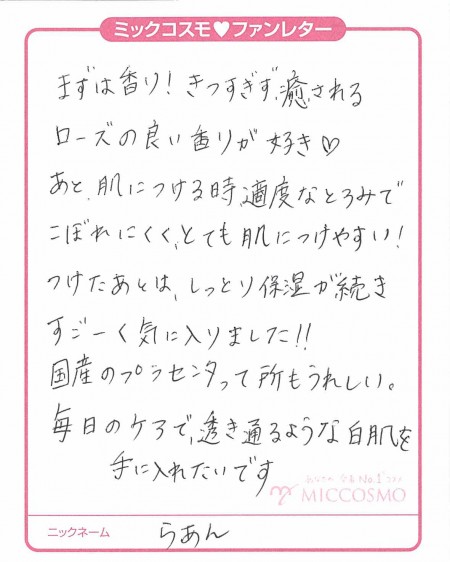 ミックコスモ♥ファンレター
まずは香り！きつすぎず、癒される
ローズの良い香りが好き♡
あと、肌につける時、適度なとろみで
こぼれにくく、とても肌につけやすい！
つけたあとは、しっとり保湿が続き
すごーく気に入りました!!
国産のプラセンタって所もうれしい。
毎日のケアで、透き通るような白肌を
手に入れたいです
あなたの No.1 コスメ
MICCOSMO
ニックネーム らあん